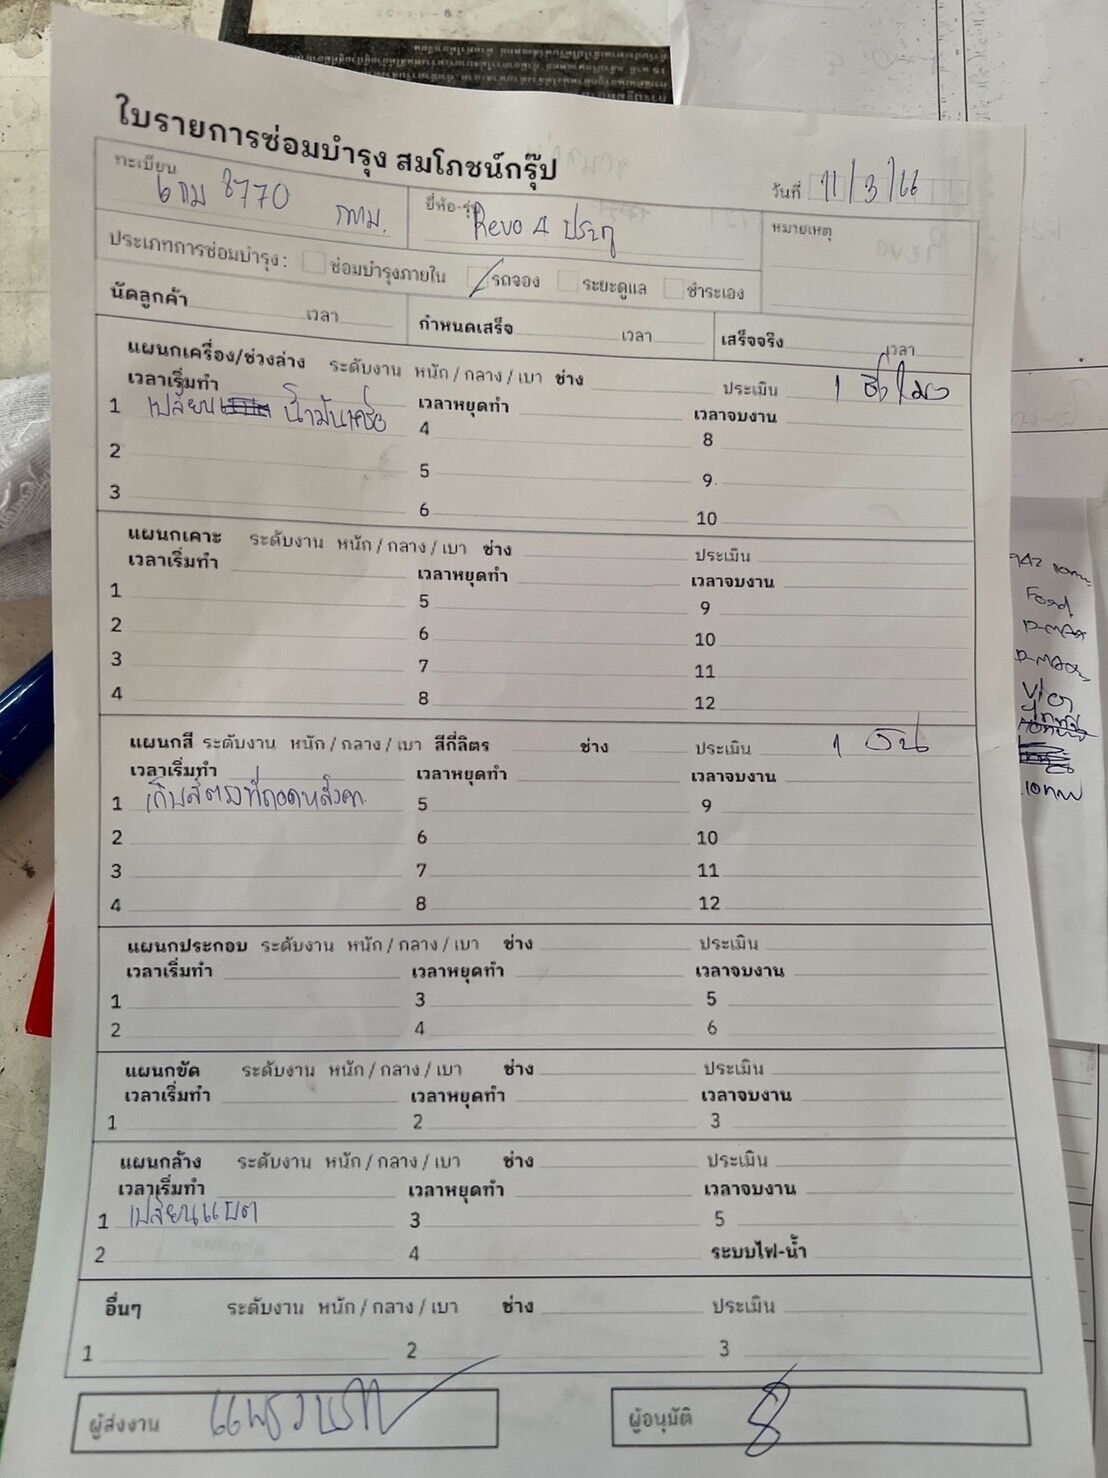 ใบรายการซ่อมบำรุง สมโภชน์กรุ๊ป
วันที่ 11/3/66
ทะเบียน 6 กม 8770 กทม.
ยี่ห้อ-รุ่น Revo 4 ประตู
หมายเหตุ
ประเภทการซ่อมบำรุง : ซ่อมบำรุงภายใน รถจอง ระยะดูแล ชำระเอง
นัดลูกค้า เวลา กำหนดเสร็จ เวลา เสร็จจริง เวลา
แผนกเครื่อง/ช่วงล่าง ระดับงาน หนัก / กลาง / เบา ช่าง ประเมิน 1 ชั่วโมง
เวลาเริ่มทำ เวลาหยุดทำ เวลาจบงาน
1 เปลี่ยน น้ำมันเครื่อง 4 8
2 5 9
3 6 10
แผนกเคาะ ระดับงาน หนัก / กลาง / เบา ช่าง ประเมิน
เวลาเริ่มทำ เวลาหยุดทำ เวลาจบงาน
1 5 9
2 6 10
3 7 11
4 8 12
แผนกสี ระดับงาน หนัก / กลาง / เบา สีกี่ลิตร ช่าง ประเมิน 1 วัน
เวลาเริ่มทำ เวลาหยุดทำ เวลาจบงาน
1 เก็บสีตรงที่ถอดหลังคา 5 9
2 6 10
3 7 11
4 8 12
แผนกประกอบ ระดับงาน หนัก / กลาง / เบา ช่าง ประเมิน
เวลาเริ่มทำ เวลาหยุดทำ เวลาจบงาน
1 3 5
2 4 6
แผนกขัด ระดับงาน หนัก / กลาง / เบา ช่าง ประเมิน
เวลาเริ่มทำ เวลาหยุดทำ เวลาจบงาน
1 2 3
แผนกล้าง ระดับงาน หนัก / กลาง / เบา ช่าง ประเมิน
เวลาเริ่มทำ เวลาหยุดทำ เวลาจบงาน
1 เปลี่ยนแบต 3 5
2 4 ระบบไฟ-น้ำ
อื่นๆ ระดับงาน หนัก / กลาง / เบา ช่าง ประเมิน
1 2 3
ผู้ส่งงาน
ผู้อนุมัติ
Ford
D-max